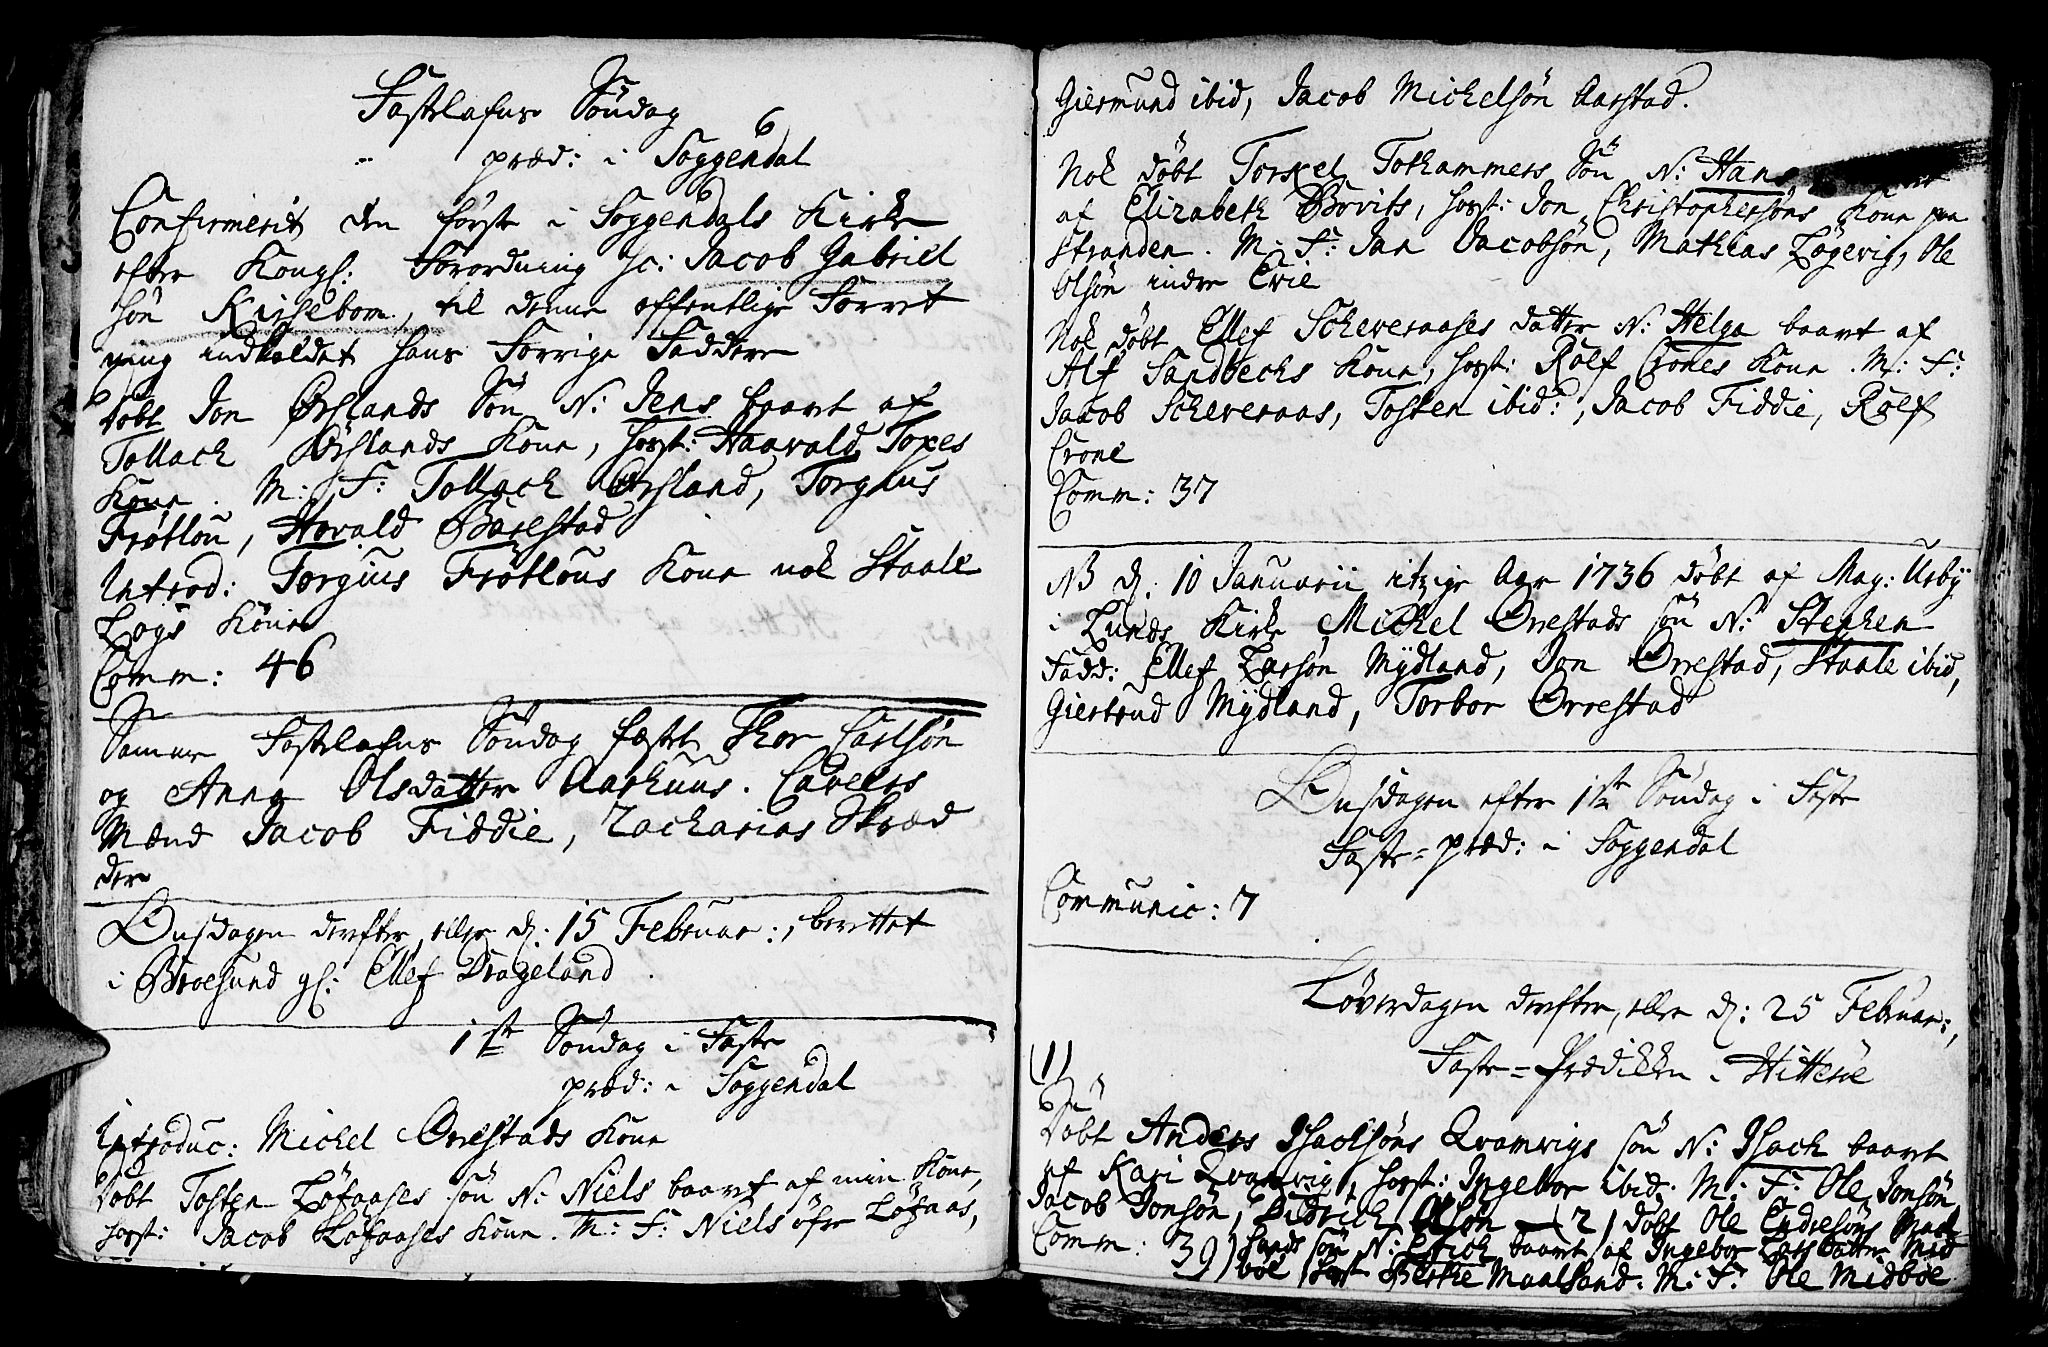 Fastelafns Söndag
præd: i Soggendal
Confirmerit den förste i Soggendals Kirke
efter Kongl: Forordning sc: Jacob Gabriel
sön Kirsebom, til denne offentlige Forret
ning indkaldet hans Forrige Faddere
Döbt Jon Ørslands Sön N: Jens baaret af
Tollach Ørslands Kone, horst: Haavald Toxes
Kone. M: F: Tollach Ørsland, Torgius
Frøtlou, Hovald Bärestad
Introd: Torgius Frøtlous Kone nok Staale
Logs Kone
Comm: 46
Samme Fastelafns Söndag fæstet Thor Carlsön
og Anna Olsdatter Aarhuus. Cavelrs
Mænd Jacob Fiddie, Zacharias Skræd
der
Onsdagen derefter eller d: 15 Februar:, berettet
i Broesund gl: Ellef Drageland
1ste Söndag i Faste
præd: i Soggendal
Introduc: Michel Orrestads Kone
Döbt Tosten Löfaases sön N: Niels baaret af min Kone,
horst: Jacob Löfaases Kone. M: F: Niels öfre Löfaas,
Giermund ibid, Jacob Michelsön Aarstad.
Nok döbt Torkel Tothammers Sön N: Hans
af Elizabeth Bovits, horst: Jon Christophersöns Kone paa
Stranden. M: F: Jan Jacobsön, Mathias Lögevig, Ole
Olsön indre Evie
Nok döbt Ellef Scheveraases datter N: Helga baaret af
Alf Sandbechs Kone, horst: Rolf Crones Kone. M: F:
Jacob Scheveraas, Tosten ibid:, Jacob Fiddie, Rolf
Crone
Comm: 37
NB d: 10 Januarii itzige Aar 1736 döbt af Mag: Usby
i Lunds Kirke Michel Orrestads sön N: Stephen
Fadd: Ellef Larsön Mydland, Jon Orrestad, Staale ibid,
Giertrud Mydland, Torbor Orrestad
Onsdagen efter 1ste Söndag i Faste
Faste=præd: i Soggendal
Communic: 7
Löverdagen derefter, eller d: 25 Februar:,
Faste=Prædiken i Hitteröe
(1)
Döbt Anders Isachsöns Qvamvigs sön N: Isach baaret
af Kari Qvamvig, horst: Ingebor ibid. M: F: Ole Jonsön
Jacob Jonsön, Didrich Olsön — (2) döbt Ole Eydelsöns
Comm: 39) Lands sön N: Erich baaret af Ingebor Larsdatter Mid
böe horst Berthe Maalsand: M: F: Ole Midböe